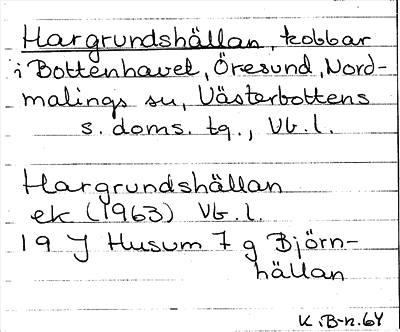 Hargrundshällan, kobbar
i Bottenhavet, Öresund, Nord-
malings sn, Västerbottens
s. doms. tg., Vb. l.
Hargrundshällan
ek (1963) Vb. l.
19 J Husum 7 g Björn-
hällan
K iB-n. 64